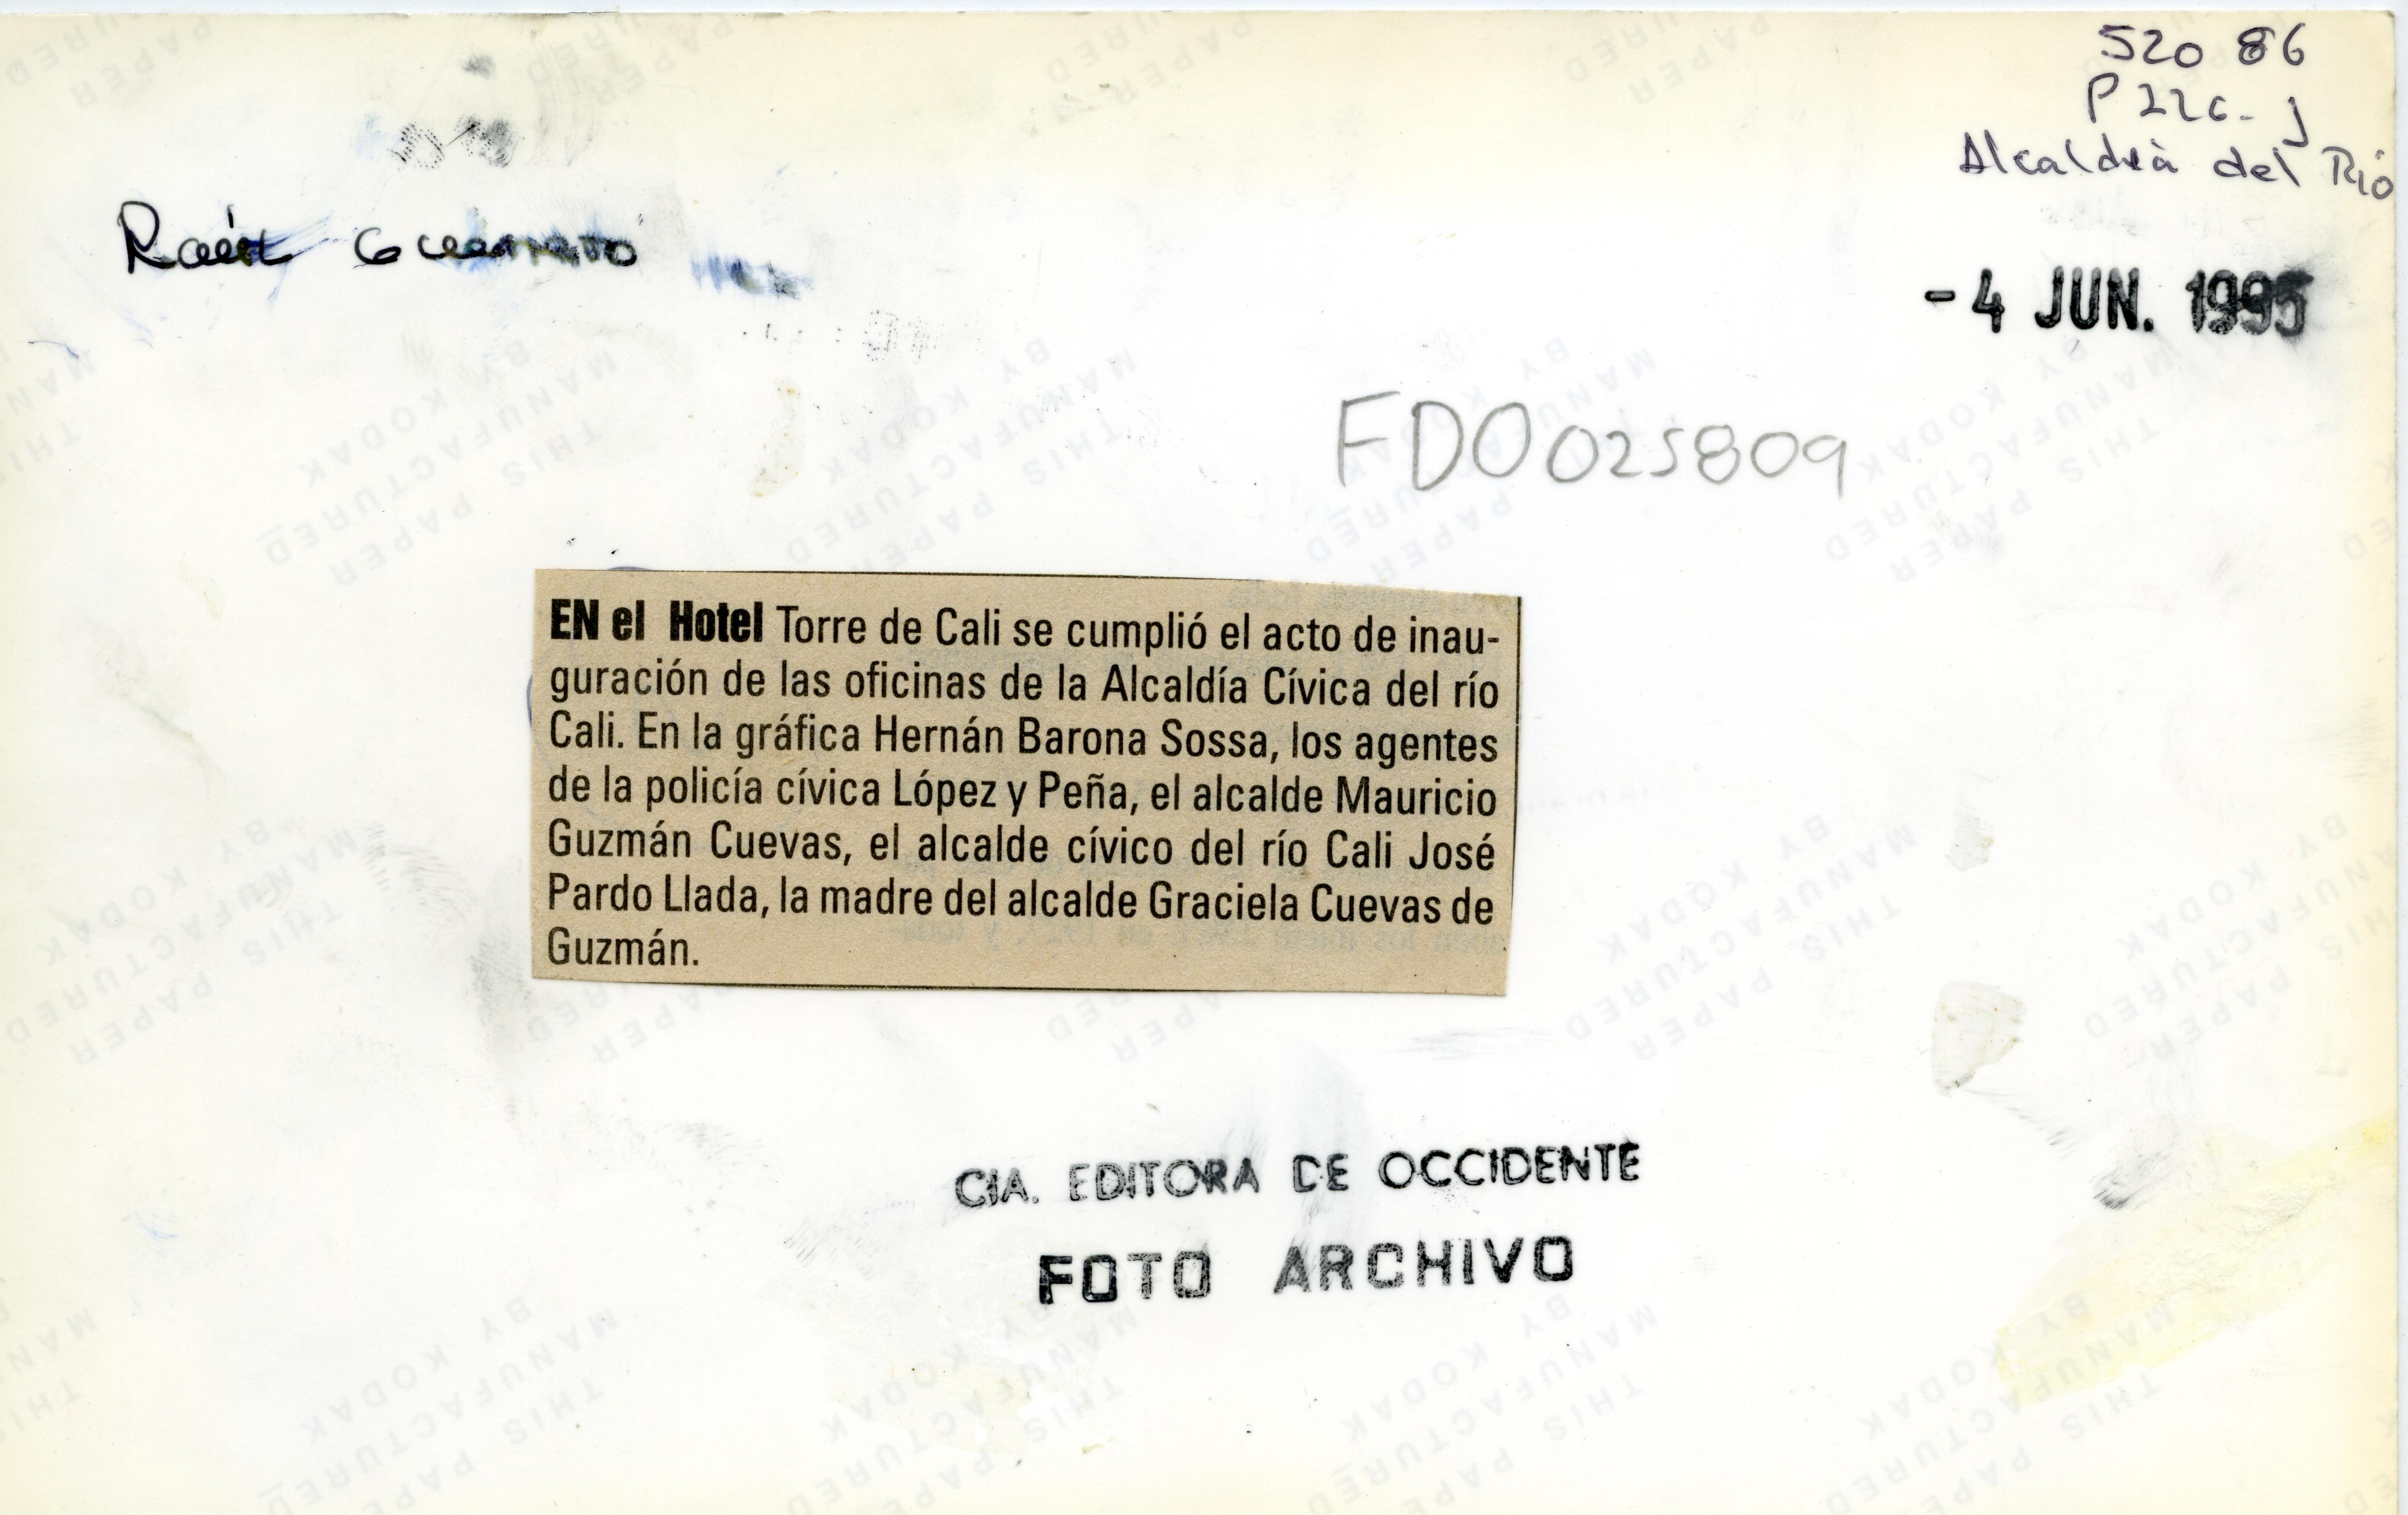 520 86
P 226-J
Alcaldía del Río
Raúl
- 4 JUN. 1995
FDO025809
EN el Hotel Torre de Cali se cumplió el acto de inau-
guración de las oficinas de la Alcaldía Cívica del río
Cali. En la gráfica Hernán Barona Sossa, los agentes
de la policía cívica López y Peña, el alcalde Mauricio
Guzmán Cuevas, el alcalde cívico del río Cali José
Pardo Llada, la madre del alcalde Graciela Cuevas de
Guzmán.
CIA. EDITORA DE OCCIDENTE
FOTO ARCHIVO
THIS PAPER
MANUFACTURED
BY KODAK